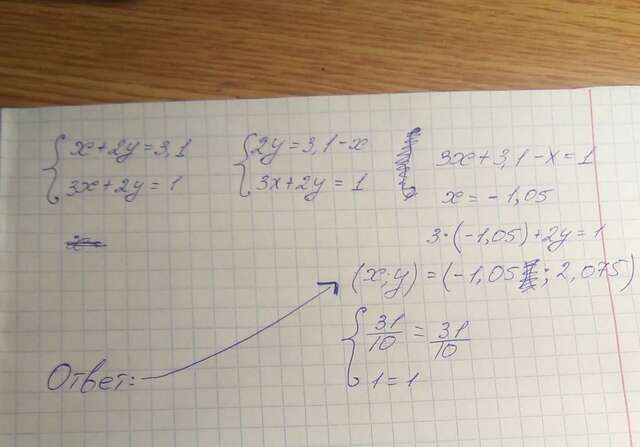 {x+2y=3,1
{3x+2y=1
{2y=3,1-x
{3x+2y=1
3x+3,1-x=1
x=-1,05
3·(-1,05)+2y=1
(x;y)=(-1,05;2,075)
{31/10=31/10
{1=1
Ответ: